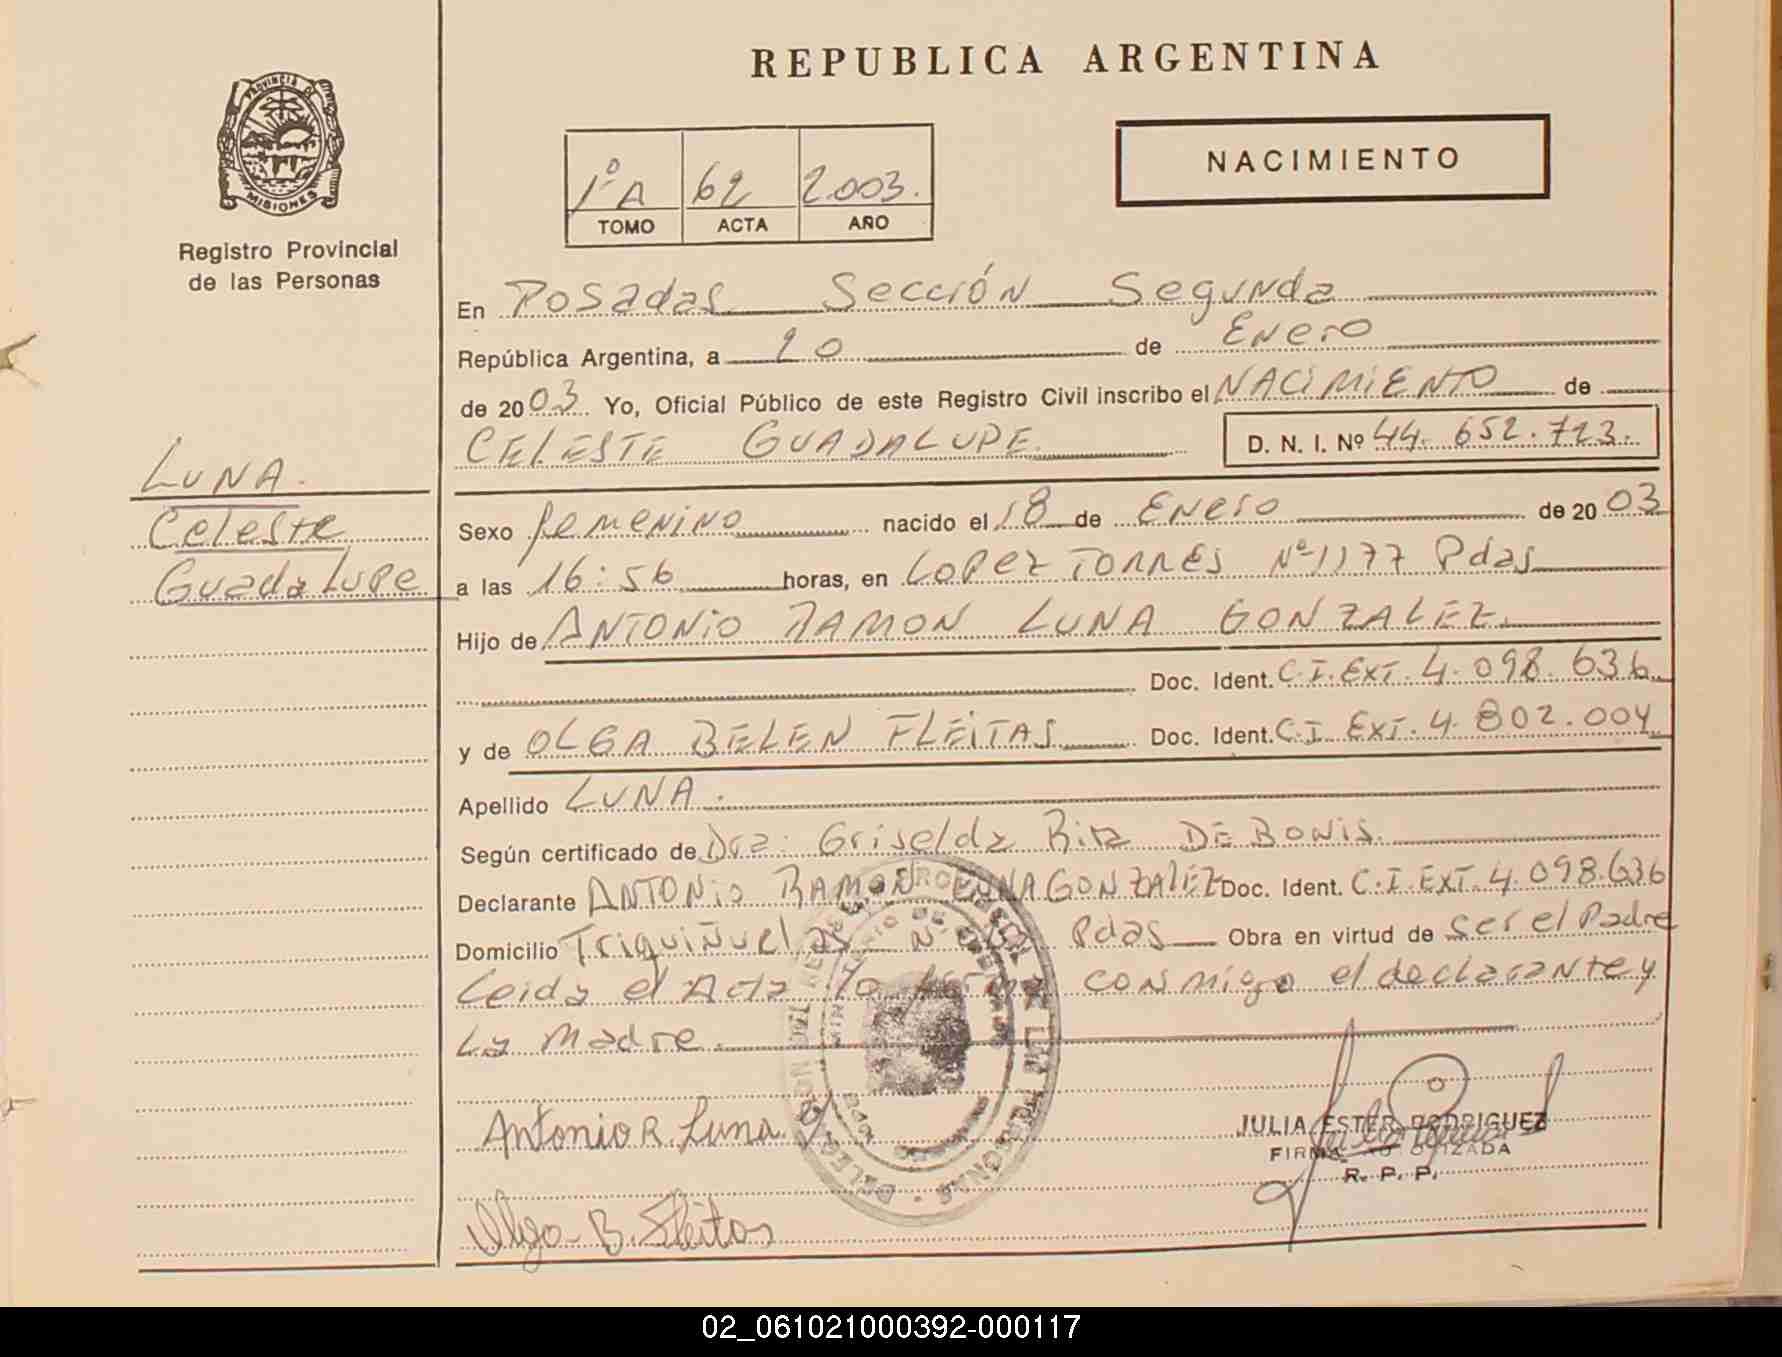 REPUBLICA ARGENTINA
PROVINCIA DE
MISIONES
Registro Provincial
de las Personas
NACIMIENTO
1º A 62 2.003.
TOMO ACTA AÑO
En Posadas Sección Segunda
República Argentina, a 20 de Enero
de 2003 Yo, Oficial Público de este Registro Civil inscribo el NACIMIENTO de
CELESTE GUADALUPE. D. N. I. Nº 44. 652.723.
LUNA.
Celeste
Guadalupe
Sexo femenino nacido el 18 de Enero de 2003
a las 16:56 horas, en LOPEZ TORRES Nº 1177 Pdas
Hijo de ANTONIO RAMON LUNA GONZALEZ.
Doc. Ident. C.I. EXT. 4.098.636
y de OLGA BELEN FLEITAS Doc. Ident. C.I. EXT. 4.802.004
Apellido LUNA.
Según certificado de Dra. Griselda Rita DE BONIS.
Declarante ANTONIO RAMON LUNA GONZALEZ Doc. Ident. C.I. EXT. 4.098.636
Domicilio Triquiñuelas Nº Pdas Obra en virtud de ser el Padre
Leida el Acta la firma conmigo el declarante y
La madre.
Antonio R. Luna
JULIA ESTER RODRIGUEZ
FIRMA AUTORIZADA
R. P. P.
Olga B. Fleitas
02_061021000392-000117